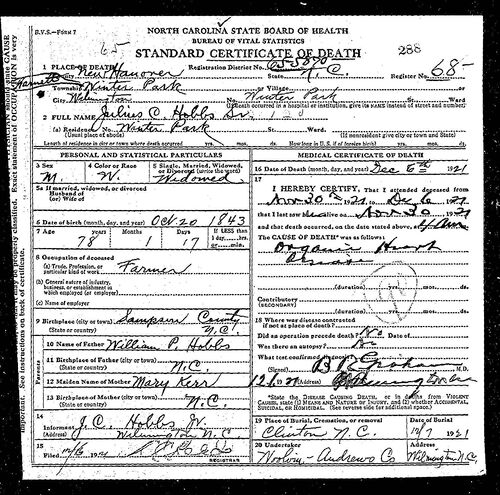 B.V.S.—FORM 7
NORTH CAROLINA STATE BOARD OF HEALTH
BUREAU OF VITAL STATISTICS
STANDARD CERTIFICATE OF DEATH
65
288
1 PLACE OF DEATH
County New Hanover
Registration District No. 65-5070
State N.C.
Register No. 68-
Harnett
Township Winter Park
or Village Winter Park
City Wilmington
No.
St.
Ward
(If death occurred in a hospital or institution, give its NAME instead of street and number)
2 FULL NAME Julius C. Hobbs Sr.
(a) Residence No. Winter Park
(Usual place of abode)
(If nonresident give city or town and State)
Length of residence in city or town where death occurred
yrs. mos. ds.
How long in U.S., if of foreign birth?
yrs. mos. ds.
PERSONAL AND STATISTICAL PARTICULARS
3 Sex
4 Color or Race
5 Single, Married, Widowed, or Divorced (write the word)
M. W. Widowed
5a If married, widowed, or divorced
Husband of
(or) Wife of
6 Date of birth (month, day, and year) Oct 20 1843
7 Age
Years
Months
Days
If LESS than
1 day, hrs.
or min.
78 1 17
8 Occupation of deceased
(a) Trade, Profession, or particular kind of work Farmer
(b) General nature of industry, business, or establishment in which employed (or employer)
(c) Name of employer
9 Birthplace (city or town) Sampson County
(State or country) N.C.
Parents
10 Name of Father William P. Hobbs
11 Birthplace of Father (city or town)
(State or country) N.C.
12 Maiden Name of Mother Mary Kerr
13 Birthplace of Mother (city or town)
(State or country) N.C.
14
Informant J.C. Hobbs Jr.
(Address) Wilmington N.C.
15
Filed 12/6, 1921
REGISTRAR
MEDICAL CERTIFICATE OF DEATH
16 Date of Death (month, day, and year) Dec 6th 1921
17
I HEREBY CERTIFY, That I attended deceased from
Nov 30th 1921, to Dec 6 1921
that I last saw him alive on Nov 30 1921
and that death occurred, on the date stated above, at 4 am
The CAUSE OF DEATH was as follows:
Organic Heart
Disease
Contributory
(SECONDARY)
18 Where was disease contracted
if not at place of death?
Did an operation precede death? No Date of
Was there an autopsy? No
What test confirmed diagnosis?
(Signed)
M.D.
(Address)
*State the DISEASE CAUSING DEATH, or in deaths from VIOLENT CAUSES, state (1) MEANS AND NATURE OF INJURY, and (2) whether ACCIDENTAL, SUICIDAL, or HOMICIDAL. (See reverse side for additional space.)
19 Place of Burial, Cremation, or removal
Date of Burial
Clinton N.C. 12/7 1921
20 Undertaker
Address
Woolvin-Andrews Co Wilmington N.C.